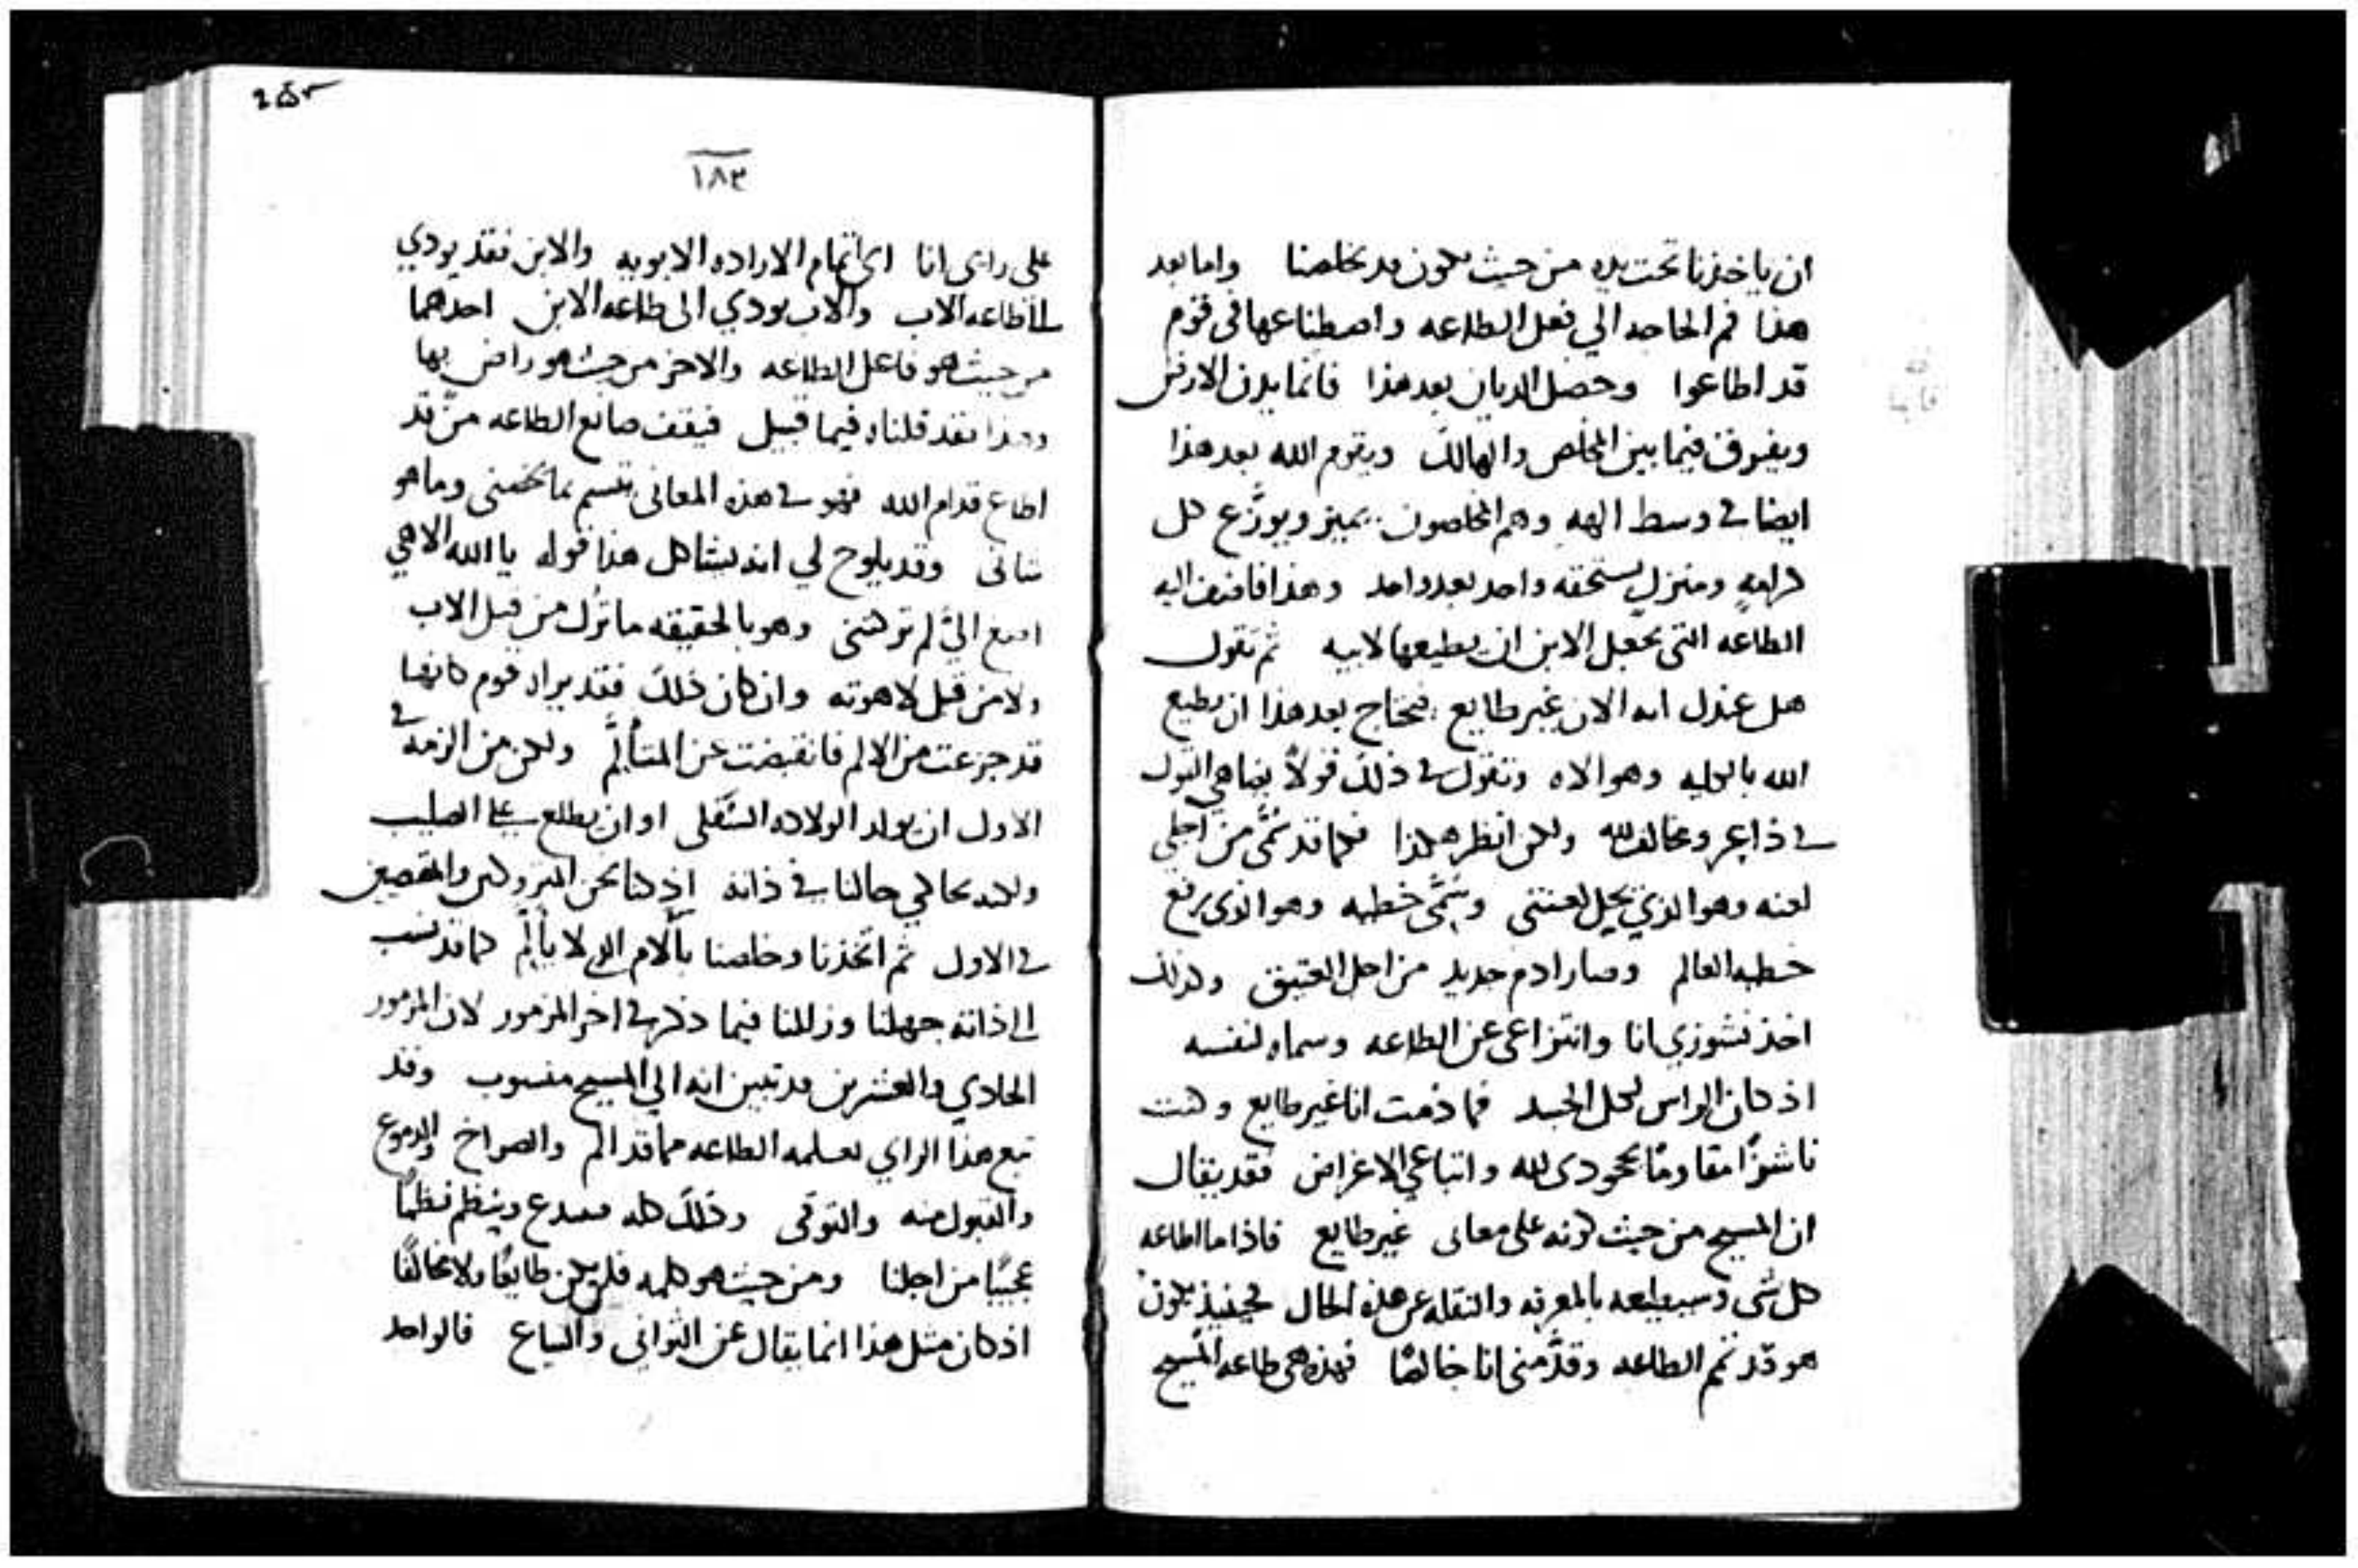 ان ياخذنا تحت يده من حيث يكون قد خلصنا واما بعد
هذا فم الحاجه الي فعل الطاعه واصطناعها في قوم
قد اطاعوا وحصل الديان بعد هذا فانما يدن الارض
ويفرق فيما بين المخلص والهالك ويقوم الله بعد هذا
ايضا في وسط الهه وهم المخلصون يميز ويوزع كل
كرامه ومنزل يستحقه واحد بعد واحد وهذا فاضف اليه
الطاعه التي يجعل الابن ان يطيعها لابيه ثم تقول
هل عندك انه الان غير طايع فيحتاج بعد هذا ان يطيع
الله بالكليه وهو الاه وتقول في ذلك قولاً يضاهي القول
في ذاعر ومخالف لله ولكن انظر هكذا فكما قد سُمّي من اجلي
لعنه وهو الذي يحل لعنتي ويُسمّى خطيه وهو الذي يرفع
خطيه العالم وصار ادم جديد من اجل العتيق وكذلك
اخذ نشوزي انا وانتزاعي عن الطاعه وسماه لنفسه
اذ كان الراس لكل الجسد فما دمت انا غير طايع وكنت
ناشزًا مقاومًا بجحودي لله واتباعي الاغراض فقد يقال
ان المسيح من حيث كونه على معاني غير طايع فاذا ما اطاعه
كل شي وسيطيعه بالمعرفه والنقله عن هذه الحال فحينيذ يكون
هو قد تمم الطاعه وقدّمني انا خالصًا فهذه هي طاعه المسيح
253
١٨٣
على راي انا اي اتمام الاراده الابويه والابن فقد يودي
طاعه الاب والاب يودي الى طاعه الابن احدهما
من حيث هو فاعل الطاعه والاخر من حيث هو راض بها
وهذا فقد قلناه فيما قبيل فيقف صانع الطاعه من قد
اطاع قدام الله فهو في هذه المعاني يتسم بما يخصني وما هو
شاني وقد يلوح لي انه يشاكل هذا قوله يا الله الاهي
اصغ اليّ لم تركتني وهو بالحقيقه ما تُرك من قبل الاب
ولا من قبل لاهوته وان كان ذلك فقد يراد قوم كانها
قد جزعت من الالم فانقبضت عن المتألّم ولكن من الزمه في
الاول ان يولد الولاده السفلى او ان يطلع على الصليب
ولكنه يحاكي حالنا في ذاته اذ كنا نحن المتروكين والمقصيين
في الاول ثم اتخذنا وخلصنا بآلام الذي لا يألم كما قد نسب
الى ذاته جهلنا وزللنا فيما ذكر في اخر المزمور لان المزمور
الحادي والعشرين قد تبين انه الي المسيح منسوب وقد
تبع هذا الراي تعلمه الطاعه مما قد الم والصراخ والدموع
والقبول منه والتوقى وذلك كله يبدع وينظم نظمًا
عجيبًا من اجلنا ومن حيث هو كلمه فلم يكن طايعًا ولا مخالفًا
اذ كان مثل هذا انما يقال عن الثواني والتباع فالواحد